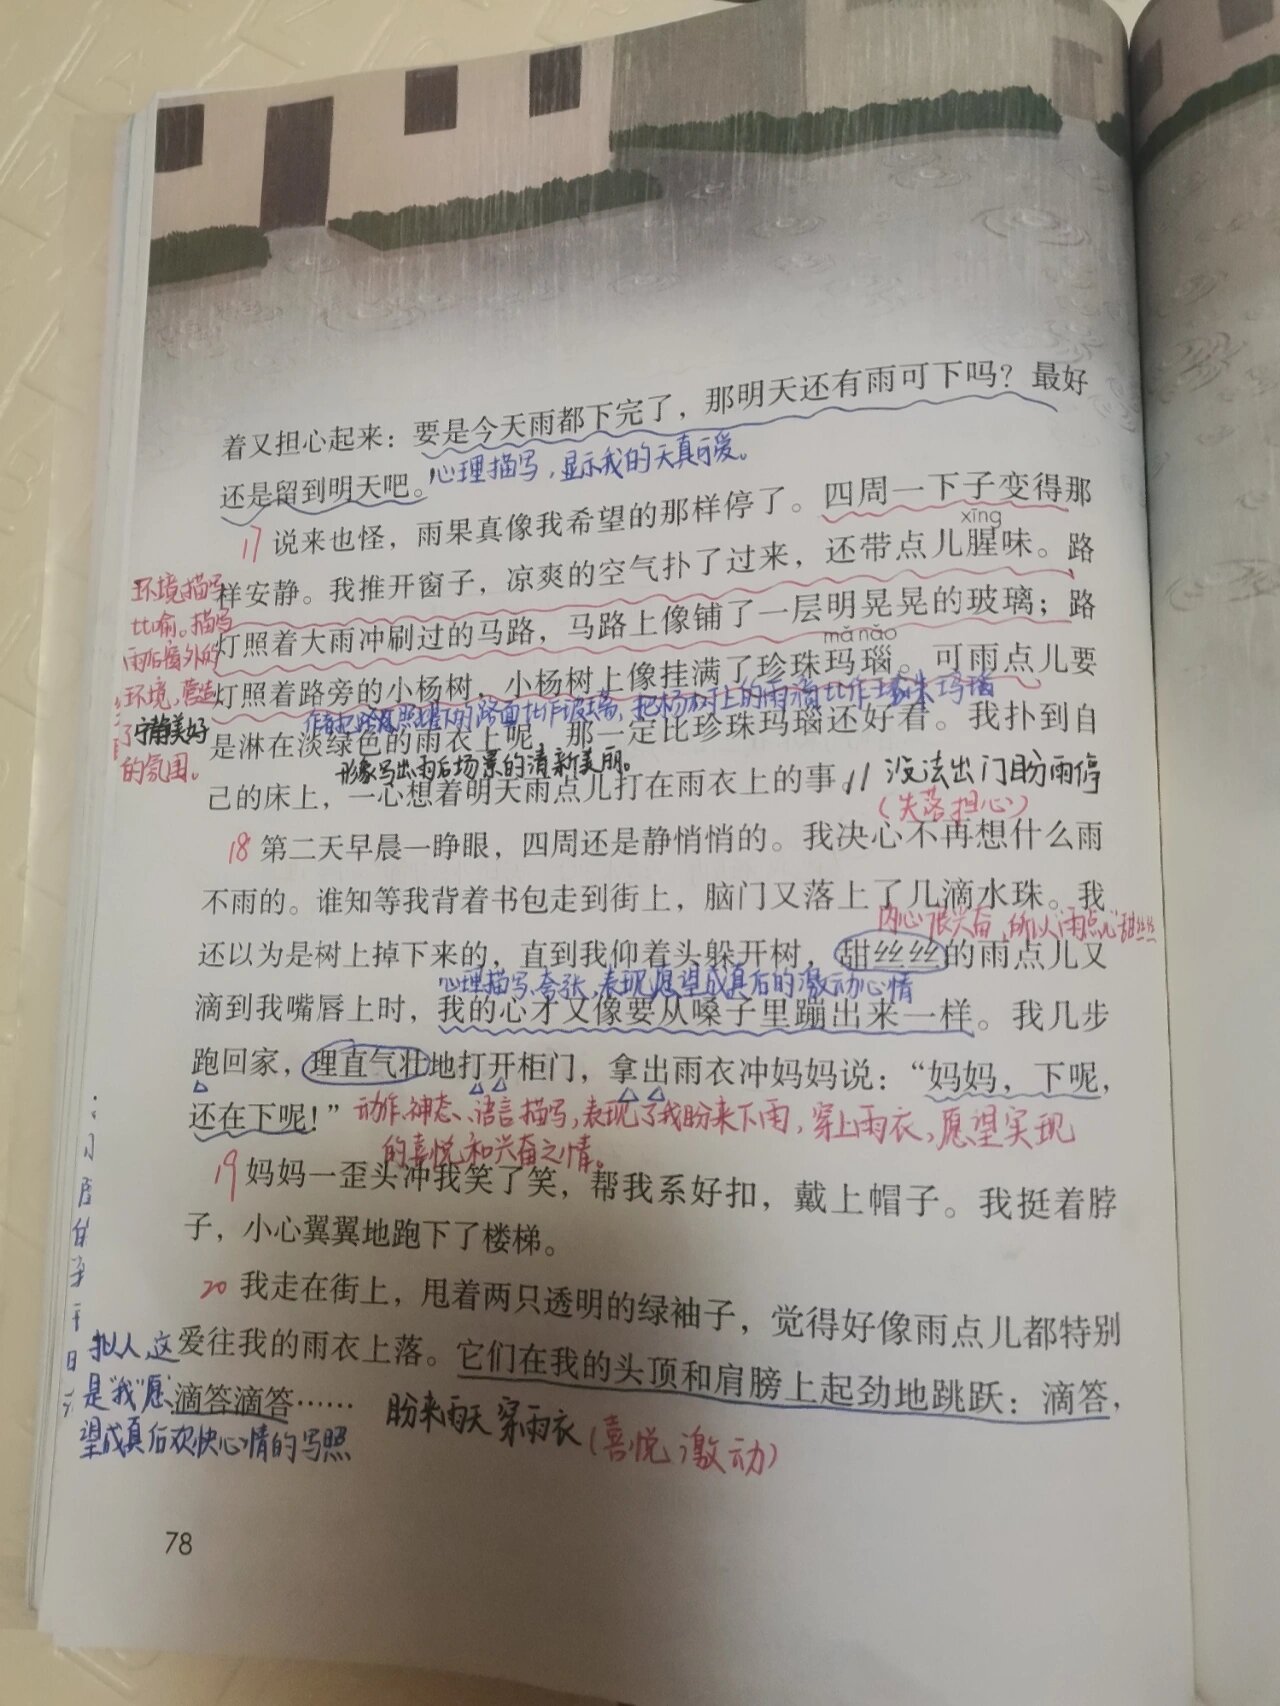 着又担心起来：要是今天雨都下完了，那明天还有雨可下吗？最好
还是留到明天吧。
心理描写，显示我的天真可爱。
17 说来也怪，雨果真像我希望的那样停了。四周一下子变得那
xīng
样安静。我推开窗子，凉爽的空气扑了过来，还带点儿腥味。路
灯照着大雨冲刷过的马路，马路上像铺了一层明晃晃的玻璃；路
mǎ nǎo
灯照着路旁的小杨树，小杨树上像挂满了珍珠玛瑙。可雨点儿要
的路面比作玻璃，把杨树上的雨滴比作珍珠玛瑙
是淋在淡绿色的雨衣上呢，那一定比珍珠玛瑙还好看。我扑到自
形象写出雨后场景的清新美丽。
己的床上，一心想着明天雨点儿打在雨衣上的事
没法出门盼雨停
（失落担心）
环境描写
比喻。描写
雨后窗外的
环境，营造
了宁静美好
的氛围。
18 第二天早晨一睁眼，四周还是静悄悄的。我决心不再想什么雨
不雨的。谁知等我背着书包走到街上，脑门又落上了几滴水珠。我
内心很兴奋，所以雨点儿“甜丝丝
还以为是树上掉下来的，直到我仰着头躲开树，甜丝丝的雨点儿又
心理描写、夸张，表现愿望成真后的激动心情
滴到我嘴唇上时，我的心才又像要从嗓子里蹦出来一样。我几步
跑回家，理直气壮地打开柜门，拿出雨衣冲妈妈说：“妈妈，下呢，
还在下呢！”
动作、神态、语言描写，表现了我盼来下雨，穿上雨衣，愿望实现
的喜悦和兴奋之情。
19 妈妈一歪头冲我笑了笑，帮我系好扣，戴上帽子。我挺着脖
子，小心翼翼地跑下了楼梯。
20 我走在街上，甩着两只透明的绿袖子，觉得好像雨点儿都特别
爱往我的雨衣上落。它们在我的头顶和肩膀上起劲地跳跃：滴答，
滴答滴答……
拟人 这
是“我”愿
望成真后欢快心情的写照
盼来雨天 穿雨衣（喜悦 激动）
78